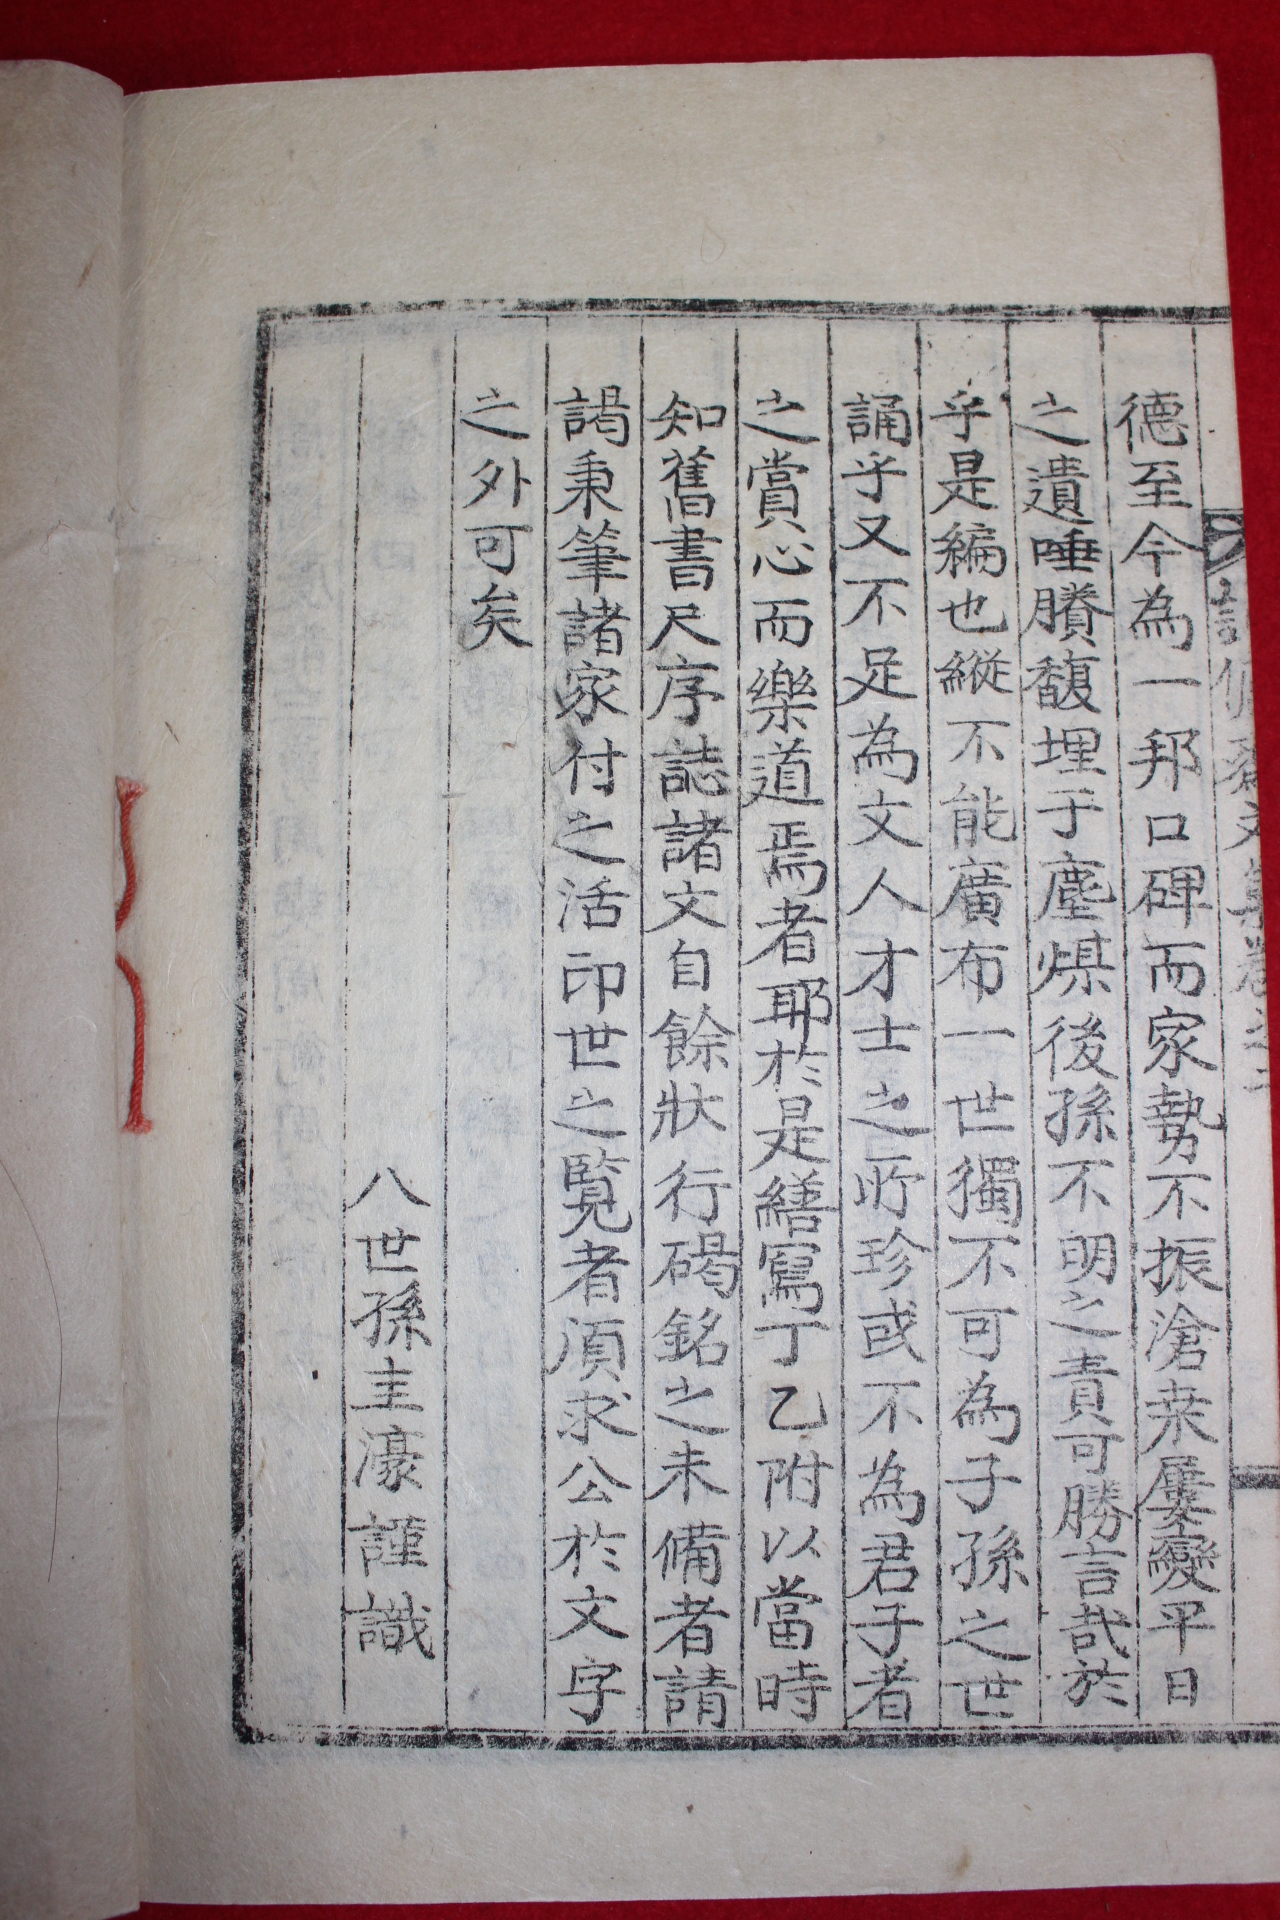 德至今為一邦口碑而家勢不振滄桒屢變平日
之遺唾賸馥埋于塵煤後孫不明之責可勝言哉於
乎是編也縱不能廣布一世獨不可為子孫之世
誦乎又不足為文人才士之所珍或不為君子者
之賞心而樂道焉者耶於是繕寫丁乙附以當時
知舊書尺序誌諸文自餘狀行碣銘之未備者請
謁秉筆諸家付之活印世之覽者須求公於文字
之外可矣
八世孫圭濠謹識